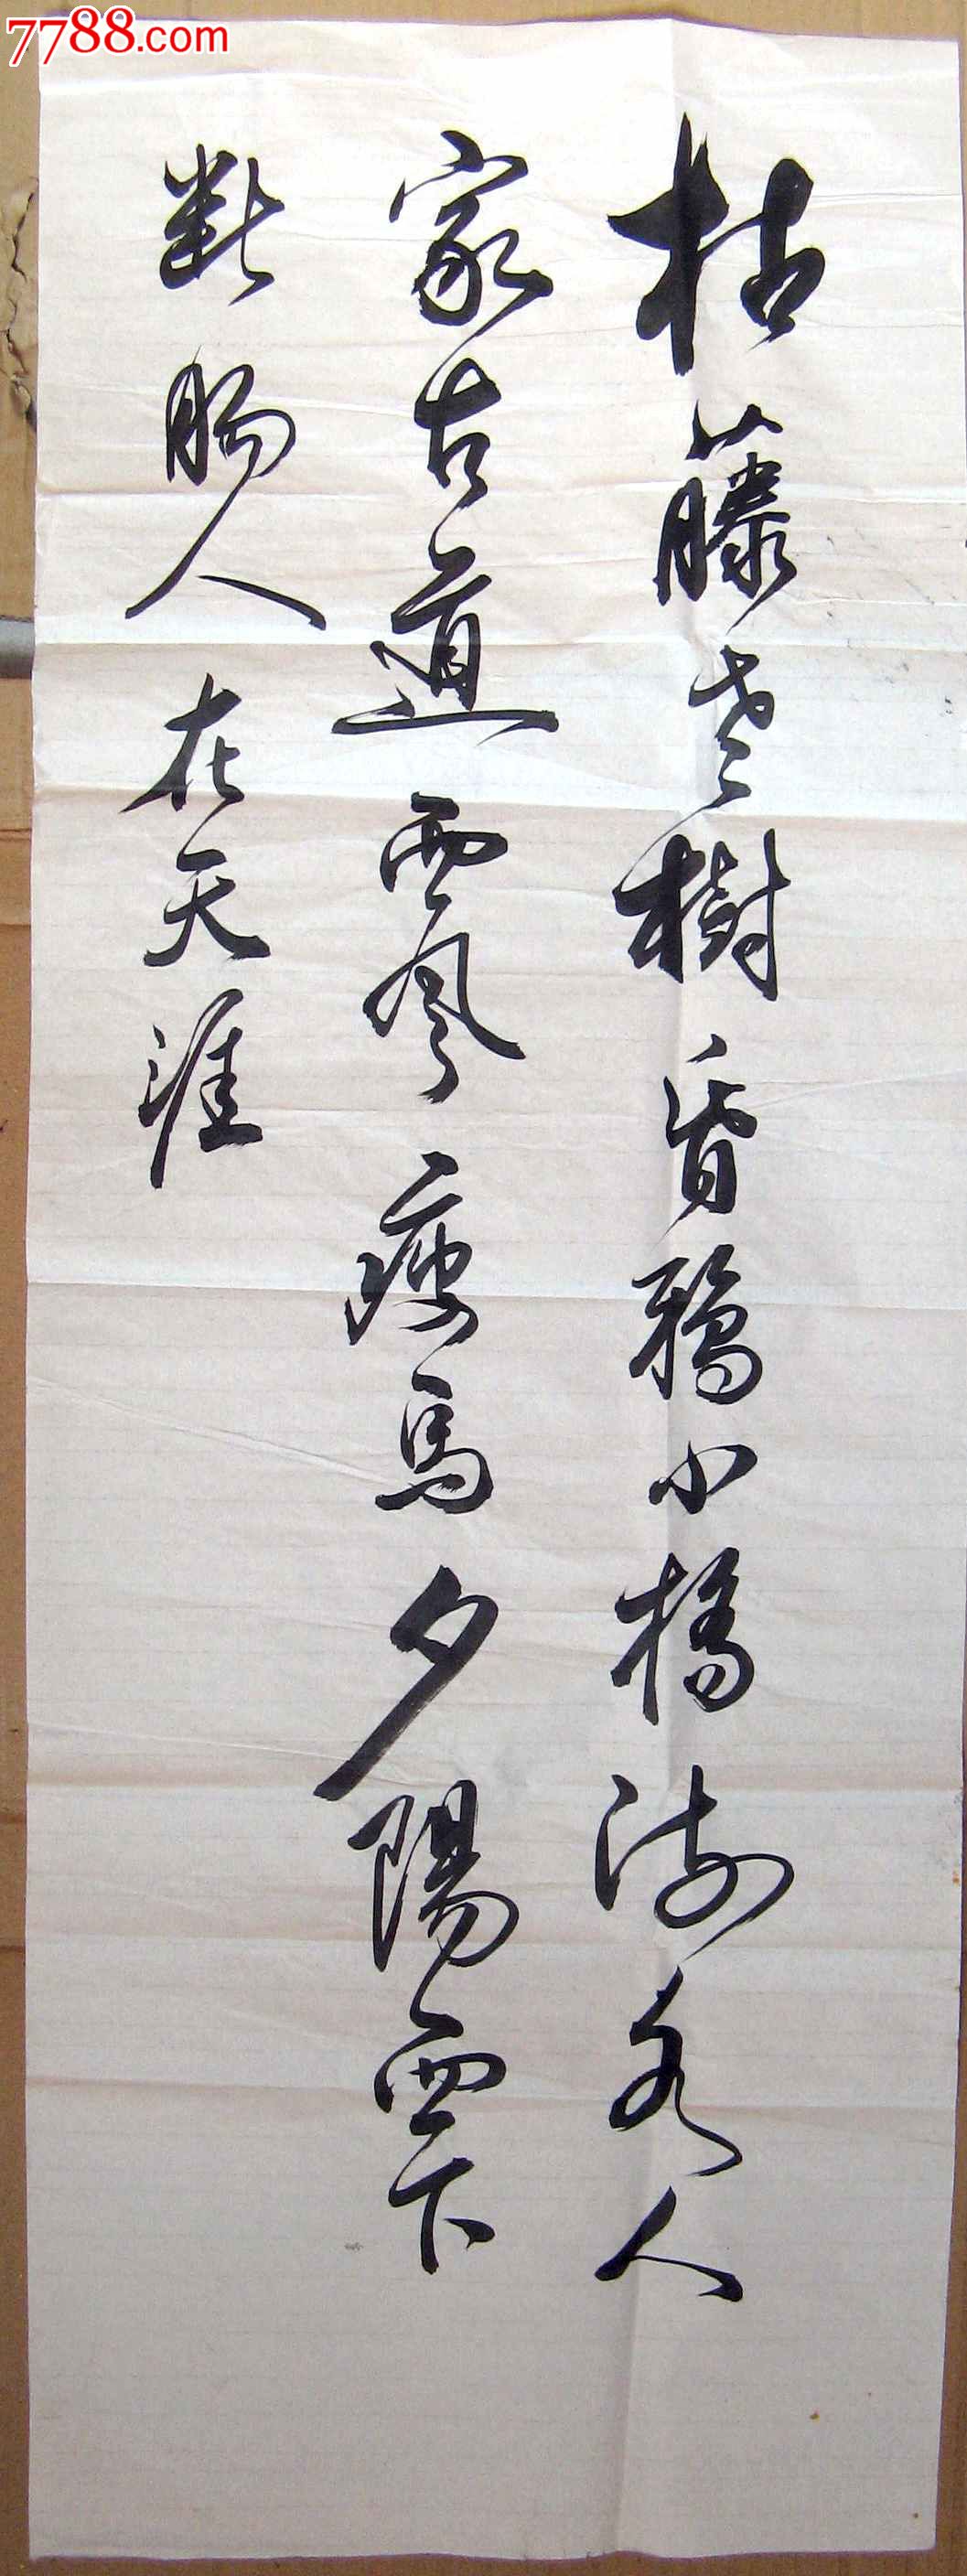 7788.com
枯藤老樹昏鴉小橋流水人
家古道西風瘦馬夕陽西下
斷腸人在天涯